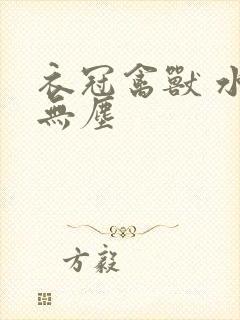 衣冠禽獸 水
無塵
方毅